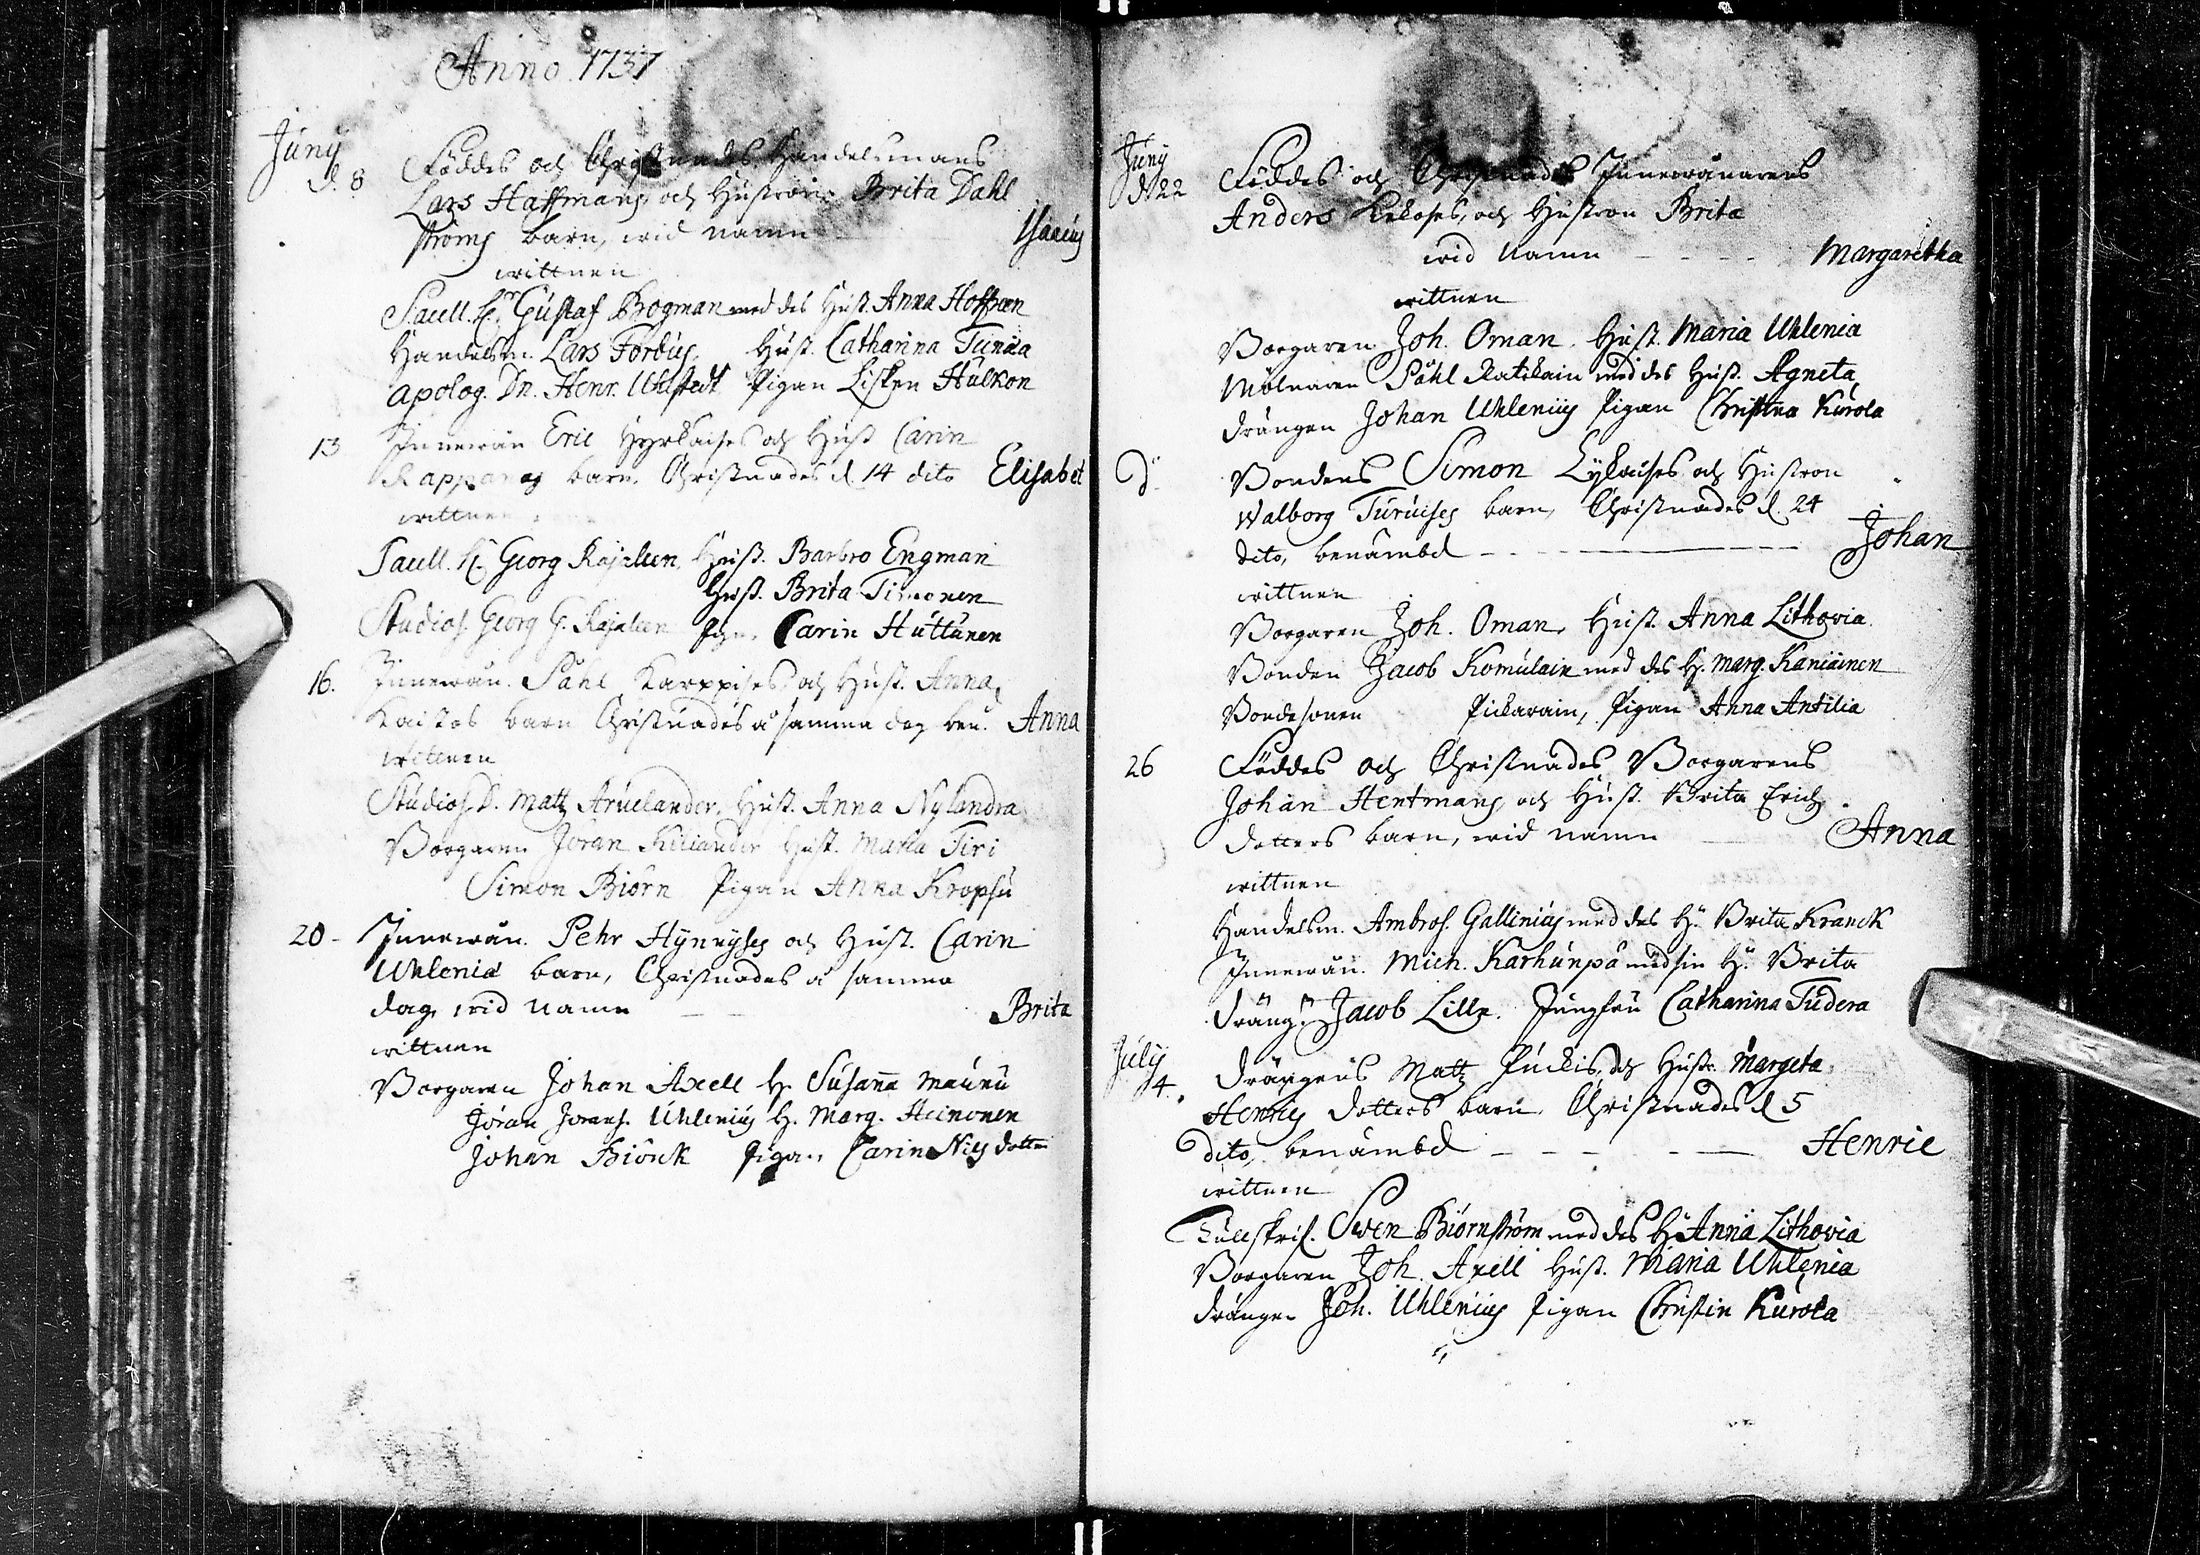 Anno 1737
Juny
d. 8 Föddes och Christnades Handelsmans
Lars Haffmans, och Hustrons Brita Dahl
ströms barn, wid namn Isacus
wittnen
Gustaf Bogman med des Hust. Anna Hoffræn
Handelsm. Lars Forbus, Hust. Catharina Tunæa
Apolog. Dn. Henr. Uhlstedt Pigan Lisken Hulkon
13 Innewån Eric Hyrkaises och Hust Carin
barn, Christnades d. 14 dito Elisabet
wittnen
Georg Rajaleen, Hust. Barbro Engman
Hust. Brita Timonen
Studios. Georg G. Rajaleen Pig. Carin Huttunen
16. Innewån. Påhl Karppises och Hust. Anna
Kaistos barn Christnades å samma dag ben. Anna
wittnen
Studios. D. Matz Aruelander, Hust. Anna Nylandra
Borgaren Jöran Kiliander Hust. Maria Tiri
Simon Biörn Pigan Anna Kropsu
20 - Innewån. Pehr Hynnyses och Hust. Carin
Uhlenia barn, Christnades å samma
dag, wid namn Brita
wittnen
Borgaren Johan Axell H. Susanna Mauru
Jöran Jörans. Uhlenius H. Marg. Heinonen
Johan Biörck Pigan Carin Nils dotter
Juny
d. 22 Föddes och Christnades Innewånarens
Anders och Hustron Brita
wid Namn - - - - Margaretha
wittnen
Borgaren Joh. Oman. Hust. Maria Uhlenia
Mölnaren Påhl Ratikain med des Hust. Agneta
Drängen Johan Uhlenius Pigan Christina Kurola
d. Bondens Simon Lykaises och Hustron
Walborg Turuises barn, Christnades d. 24
dito, benämbd - - - Johan
wittnen
Borgaren Joh. Oman, Hust. Anna Lithovia
Bonden Jacob Komulain med des H. Marg. Kaniainen
Bondesonen Pickarain, Pigan Anna Antilia
26 Föddes och Christnades Borgarens
Johan Hentmans och Hust. Brita Erichs
dotters barn, wid namn Anna
wittnen
Handelsm. Ambros. Gallenius med des H. Brita Kranck
Innewån. Mich. Karhunpä med sin H. Brita
Dräng. Jacob Lille. Jungfru Catharina Tudera
July
4. Drängens Matz Puckis, och Hust. Margeta
Henrics dotters barn, Christnades d 5
dito, benämbd - - - - Henric
wittnen
Tullskrif. Swen Biörnström med des H. Anna Lithovia
Borgaren Joh. Axell Hust. Maria Uhlenia
Drängen Joh. Uhlenius Pigan Christin Kurola